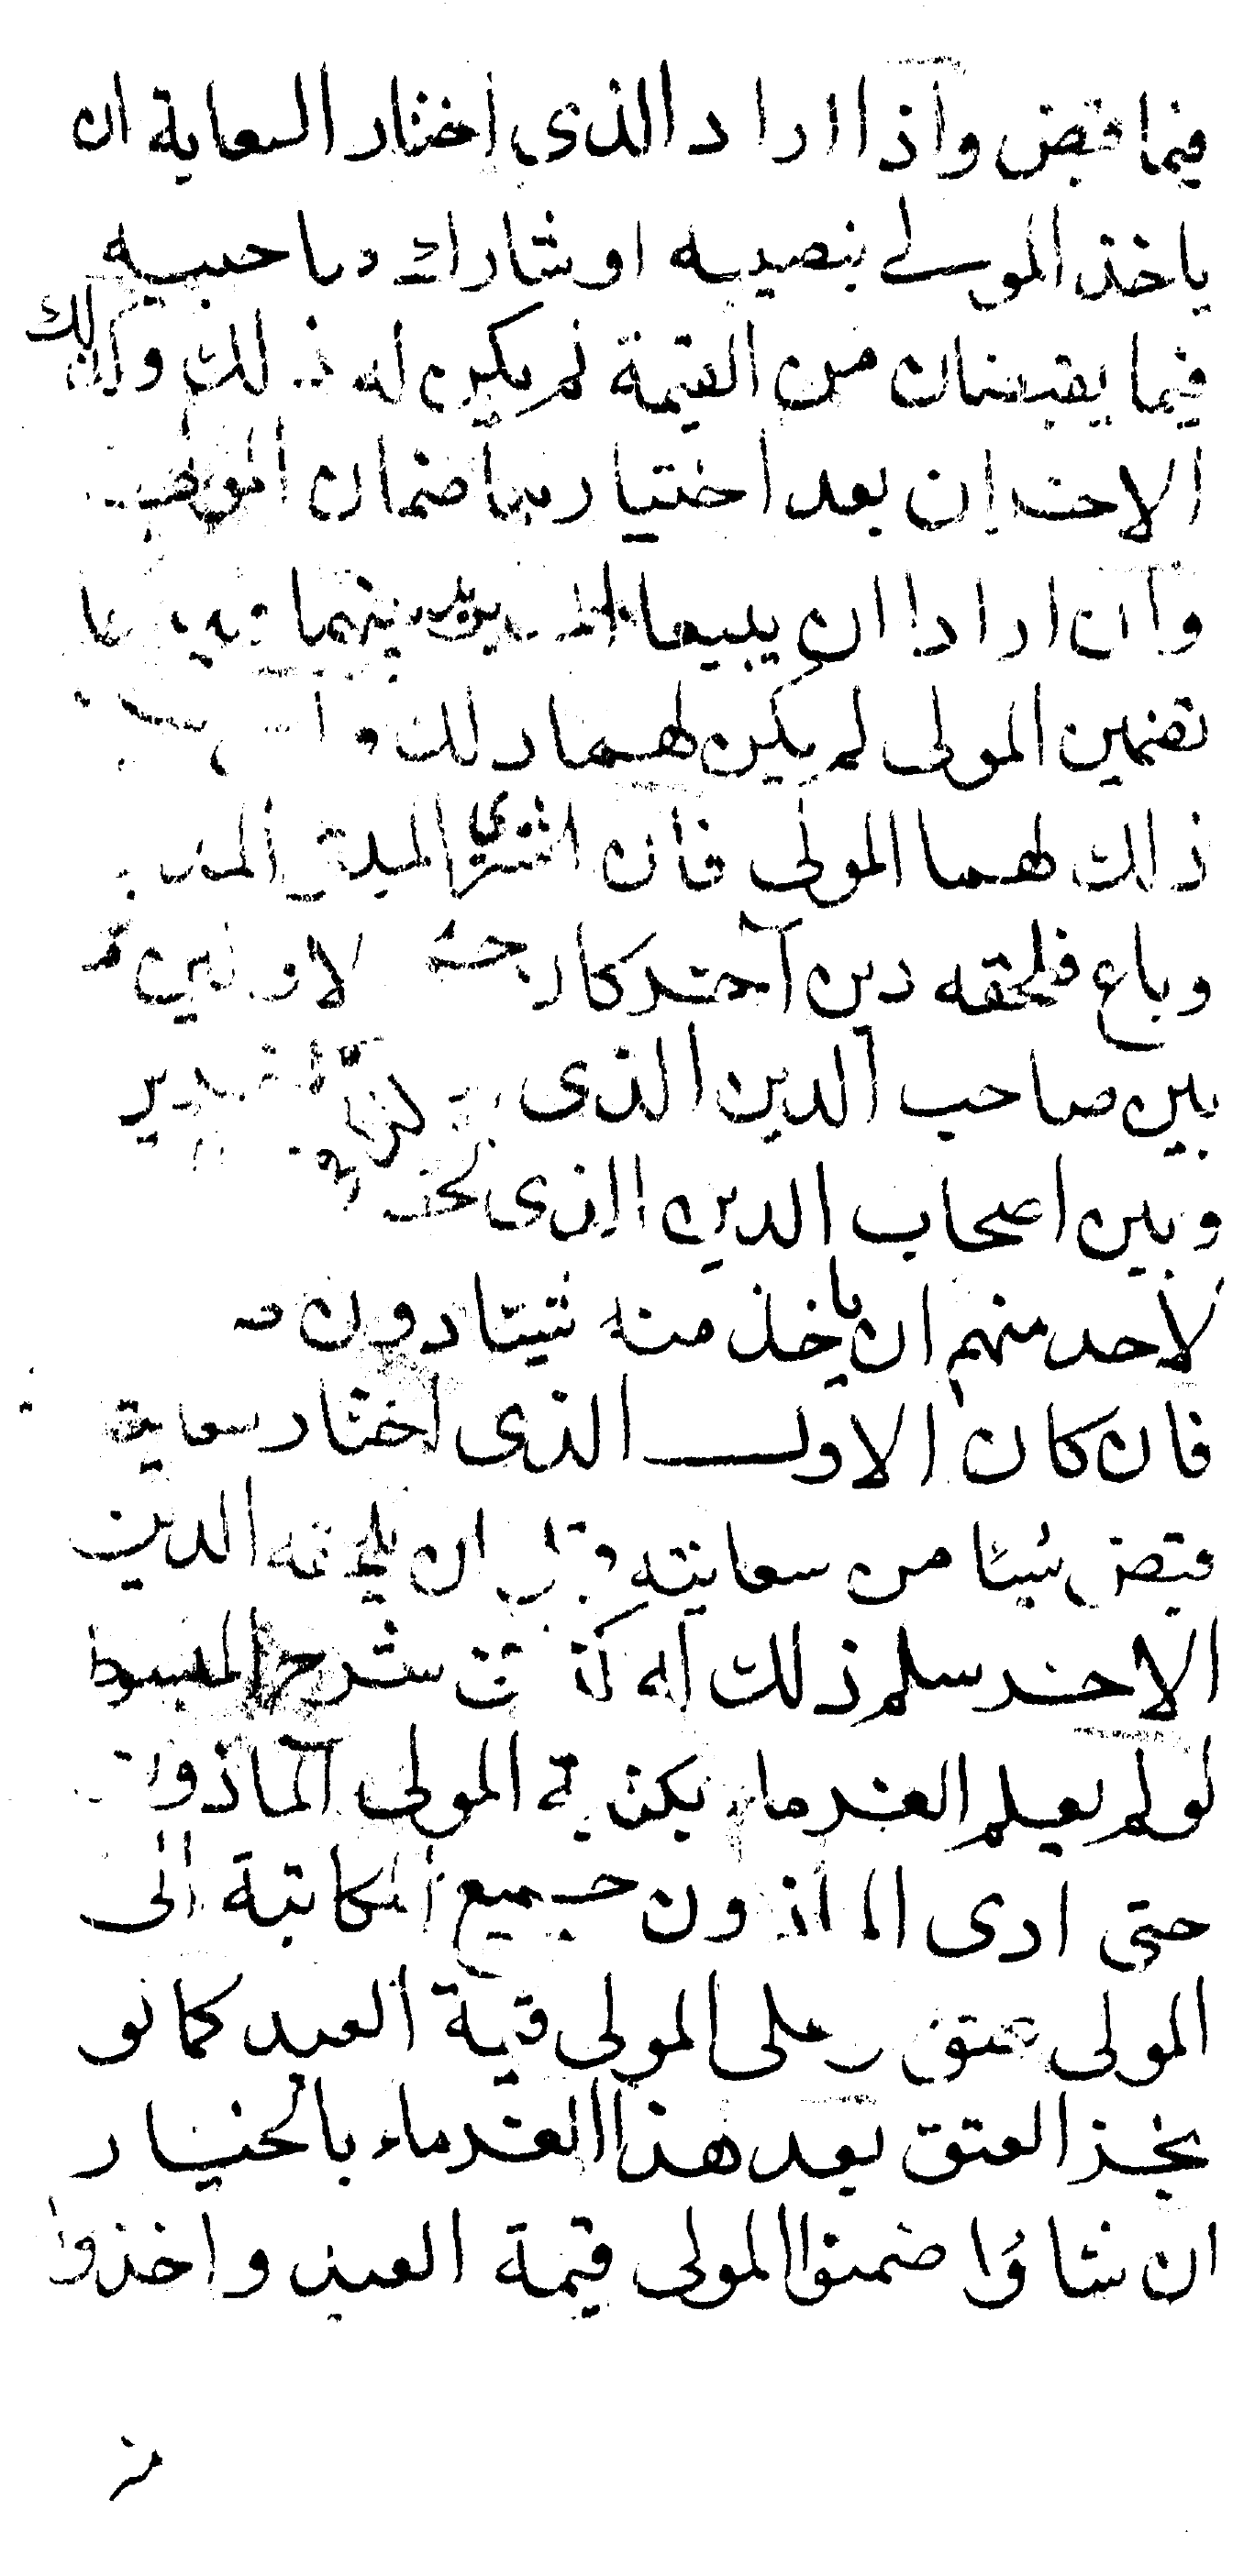 فيما قبض واذا اراد الذى اختار السعاية ان
ياخذ المولى بنصيبه او شارك صاحبيه
فيما يقبضان من القيمة لم يكن له ذلك وكذلك
الاخران بعد اختيارهما ضمان المولى
وان ارادا ان يبيعا بينهما
تضمين المولى لم يكن لهما ذلك
ذلك لهما المولى فان اشترى
وباع فلحقه دين اخر كان
بين صاحب الدين الذى
وبين اصحاب الدين الذى
لاحد منهم ان ياخذ منه شيئا دون
فان كان الاول الذى اختار سعاية
قبض شيئا من سعايته قبل ان يلحقه الدين
الاخر سلم ذلك له شرح المبسوط
لو لم يعلم الغرماء المولى الماذون
حتى ادى الماذون جميع المكاتبة الى
المولى عتق وعلى المولى قيمة العبد كما لو
نجز العتق بعد هذا الغرماء بالخيار
ان شاؤا ضمنوا المولى قيمة العبد واخذوا